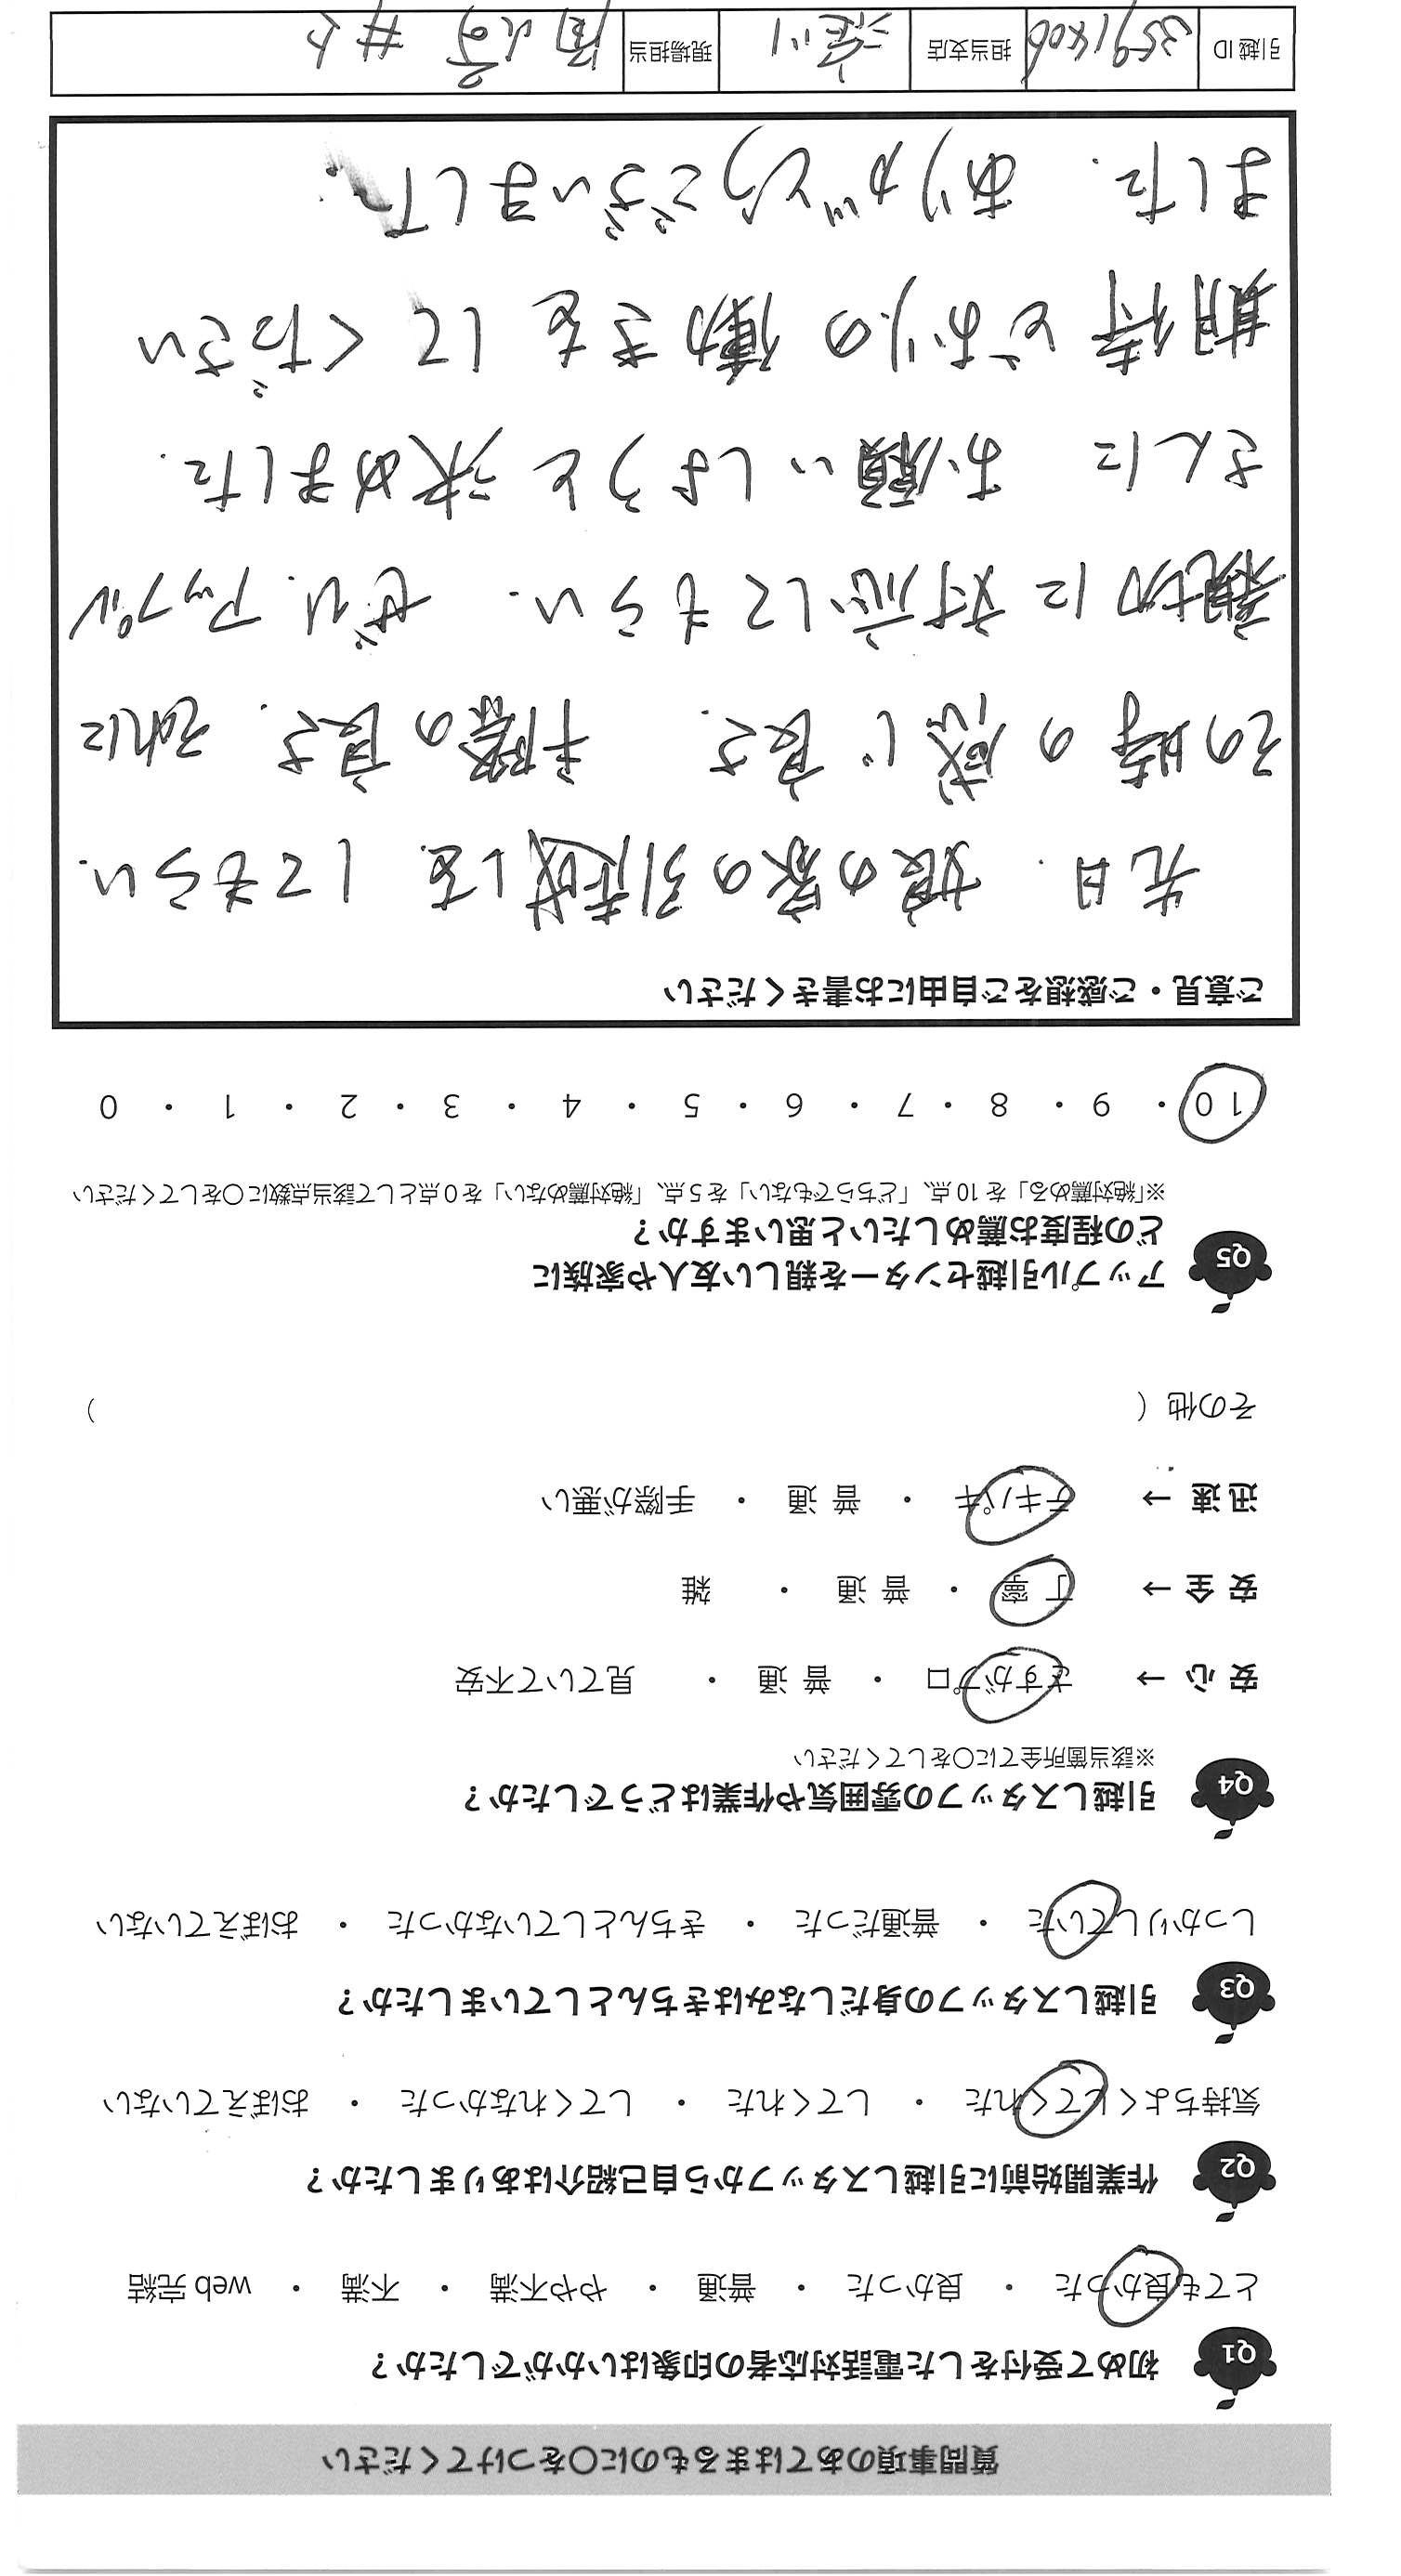 質問事項のあてはまるものに〇をつけてください
Q1 初めて受付をした電話対応者の印象はいかがでしたか？
とても良かった ・ 良かった ・ 普通 ・ やや不満 ・ 不満 ・ web 完結
Q2 作業開始前に引越しスタッフから自己紹介はありましたか？
気持ちよくしてくれた ・ してくれた ・ してくれなかった ・ おぼえていない
Q3 引越しスタッフの身だしなみはきちんとしていましたか？
しっかりしていた ・ 普通だった ・ きちんとしていなかった ・ おぼえていない
Q4 引越しスタッフの雰囲気や作業はどうでしたか？
※該当箇所全てに〇をしてください
安 心 → さすがプロ ・ 普 通 ・ 見ていて不安
安 全 → 丁 寧 ・ 普 通 ・ 雑
迅 速 → テキパキ ・ 普 通 ・ 手際が悪い
その他（ ）
Q5 アップル引越センターを親しい友人や家族に
どの程度お薦めしたいと思いますか？
※「絶対薦める」を 10 点、「どちらでもない」を 5 点、「絶対薦めない」を 0 点として該当点数に〇をしてください
10 ・ 9 ・ 8 ・ 7 ・ 6 ・ 5 ・ 4 ・ 3 ・ 2 ・ 1 ・ 0
ご意見・ご感想をご自由にお書きください
先日、娘の家の引越しを してもらい、
その時の感じ良さ、手際の良さ、それに
親切に対応してもらい、ぜひ、アップル
さんに お願いしようと決めました。
期待どおりの働きをしてください
ました。ありがとうございました。
引越 ID 3591406 担当支店 淀川 現場担当 井上